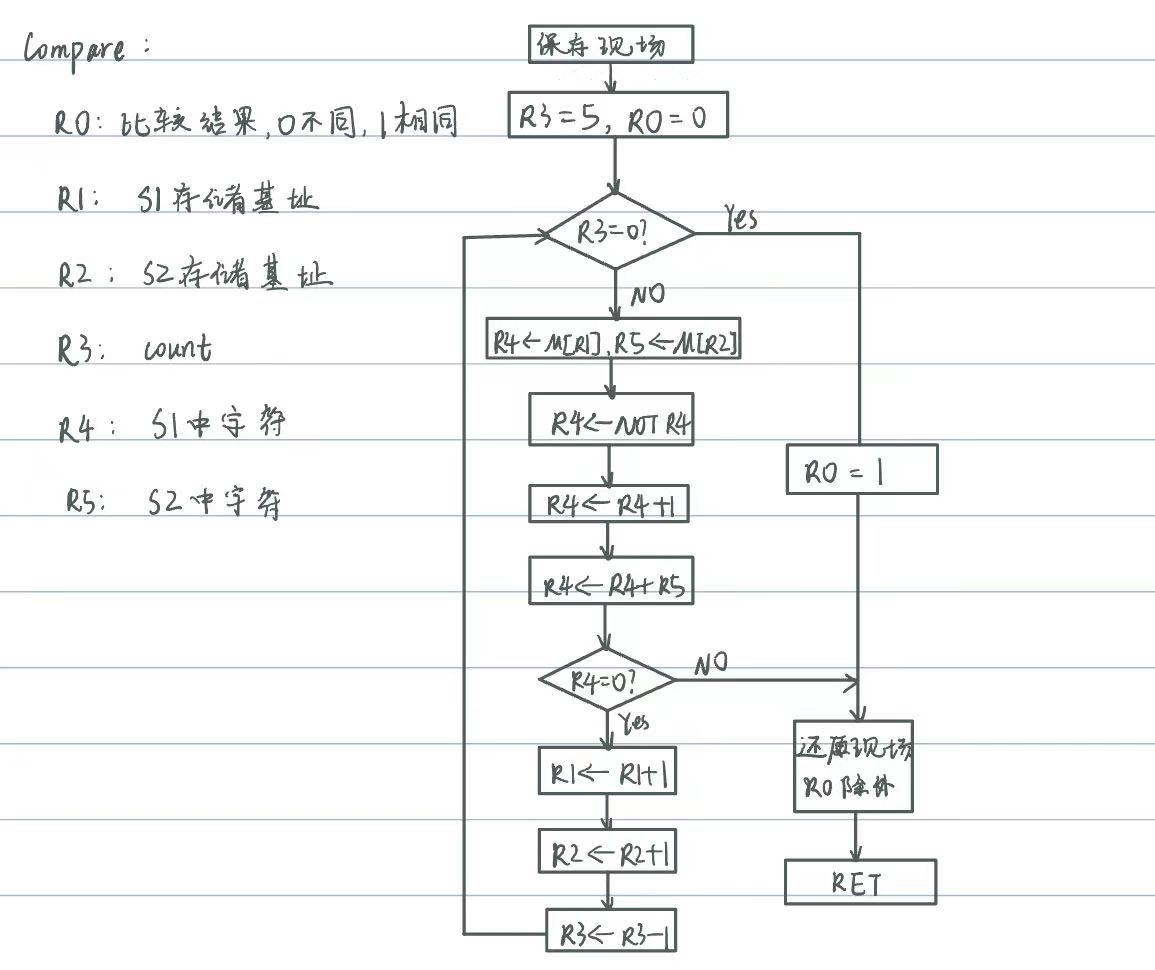 Compare:
R0: 比较结果,0不同,1相同
R1: S1存储基址
R2: S2存储基址
R3: count
R4: S1中字符
R5: S2中字符
保存现场
R3=5, R0=0
R3=0?
Yes
NO
R4←M[R1],R5←M[R2]
R4←NOT R4
R4←R4+1
R4←R4+R5
R4=0?
NO
Yes
R1←R1+1
R2←R2+1
R3←R3-1
R0=1
还原现场
R0除外
RET